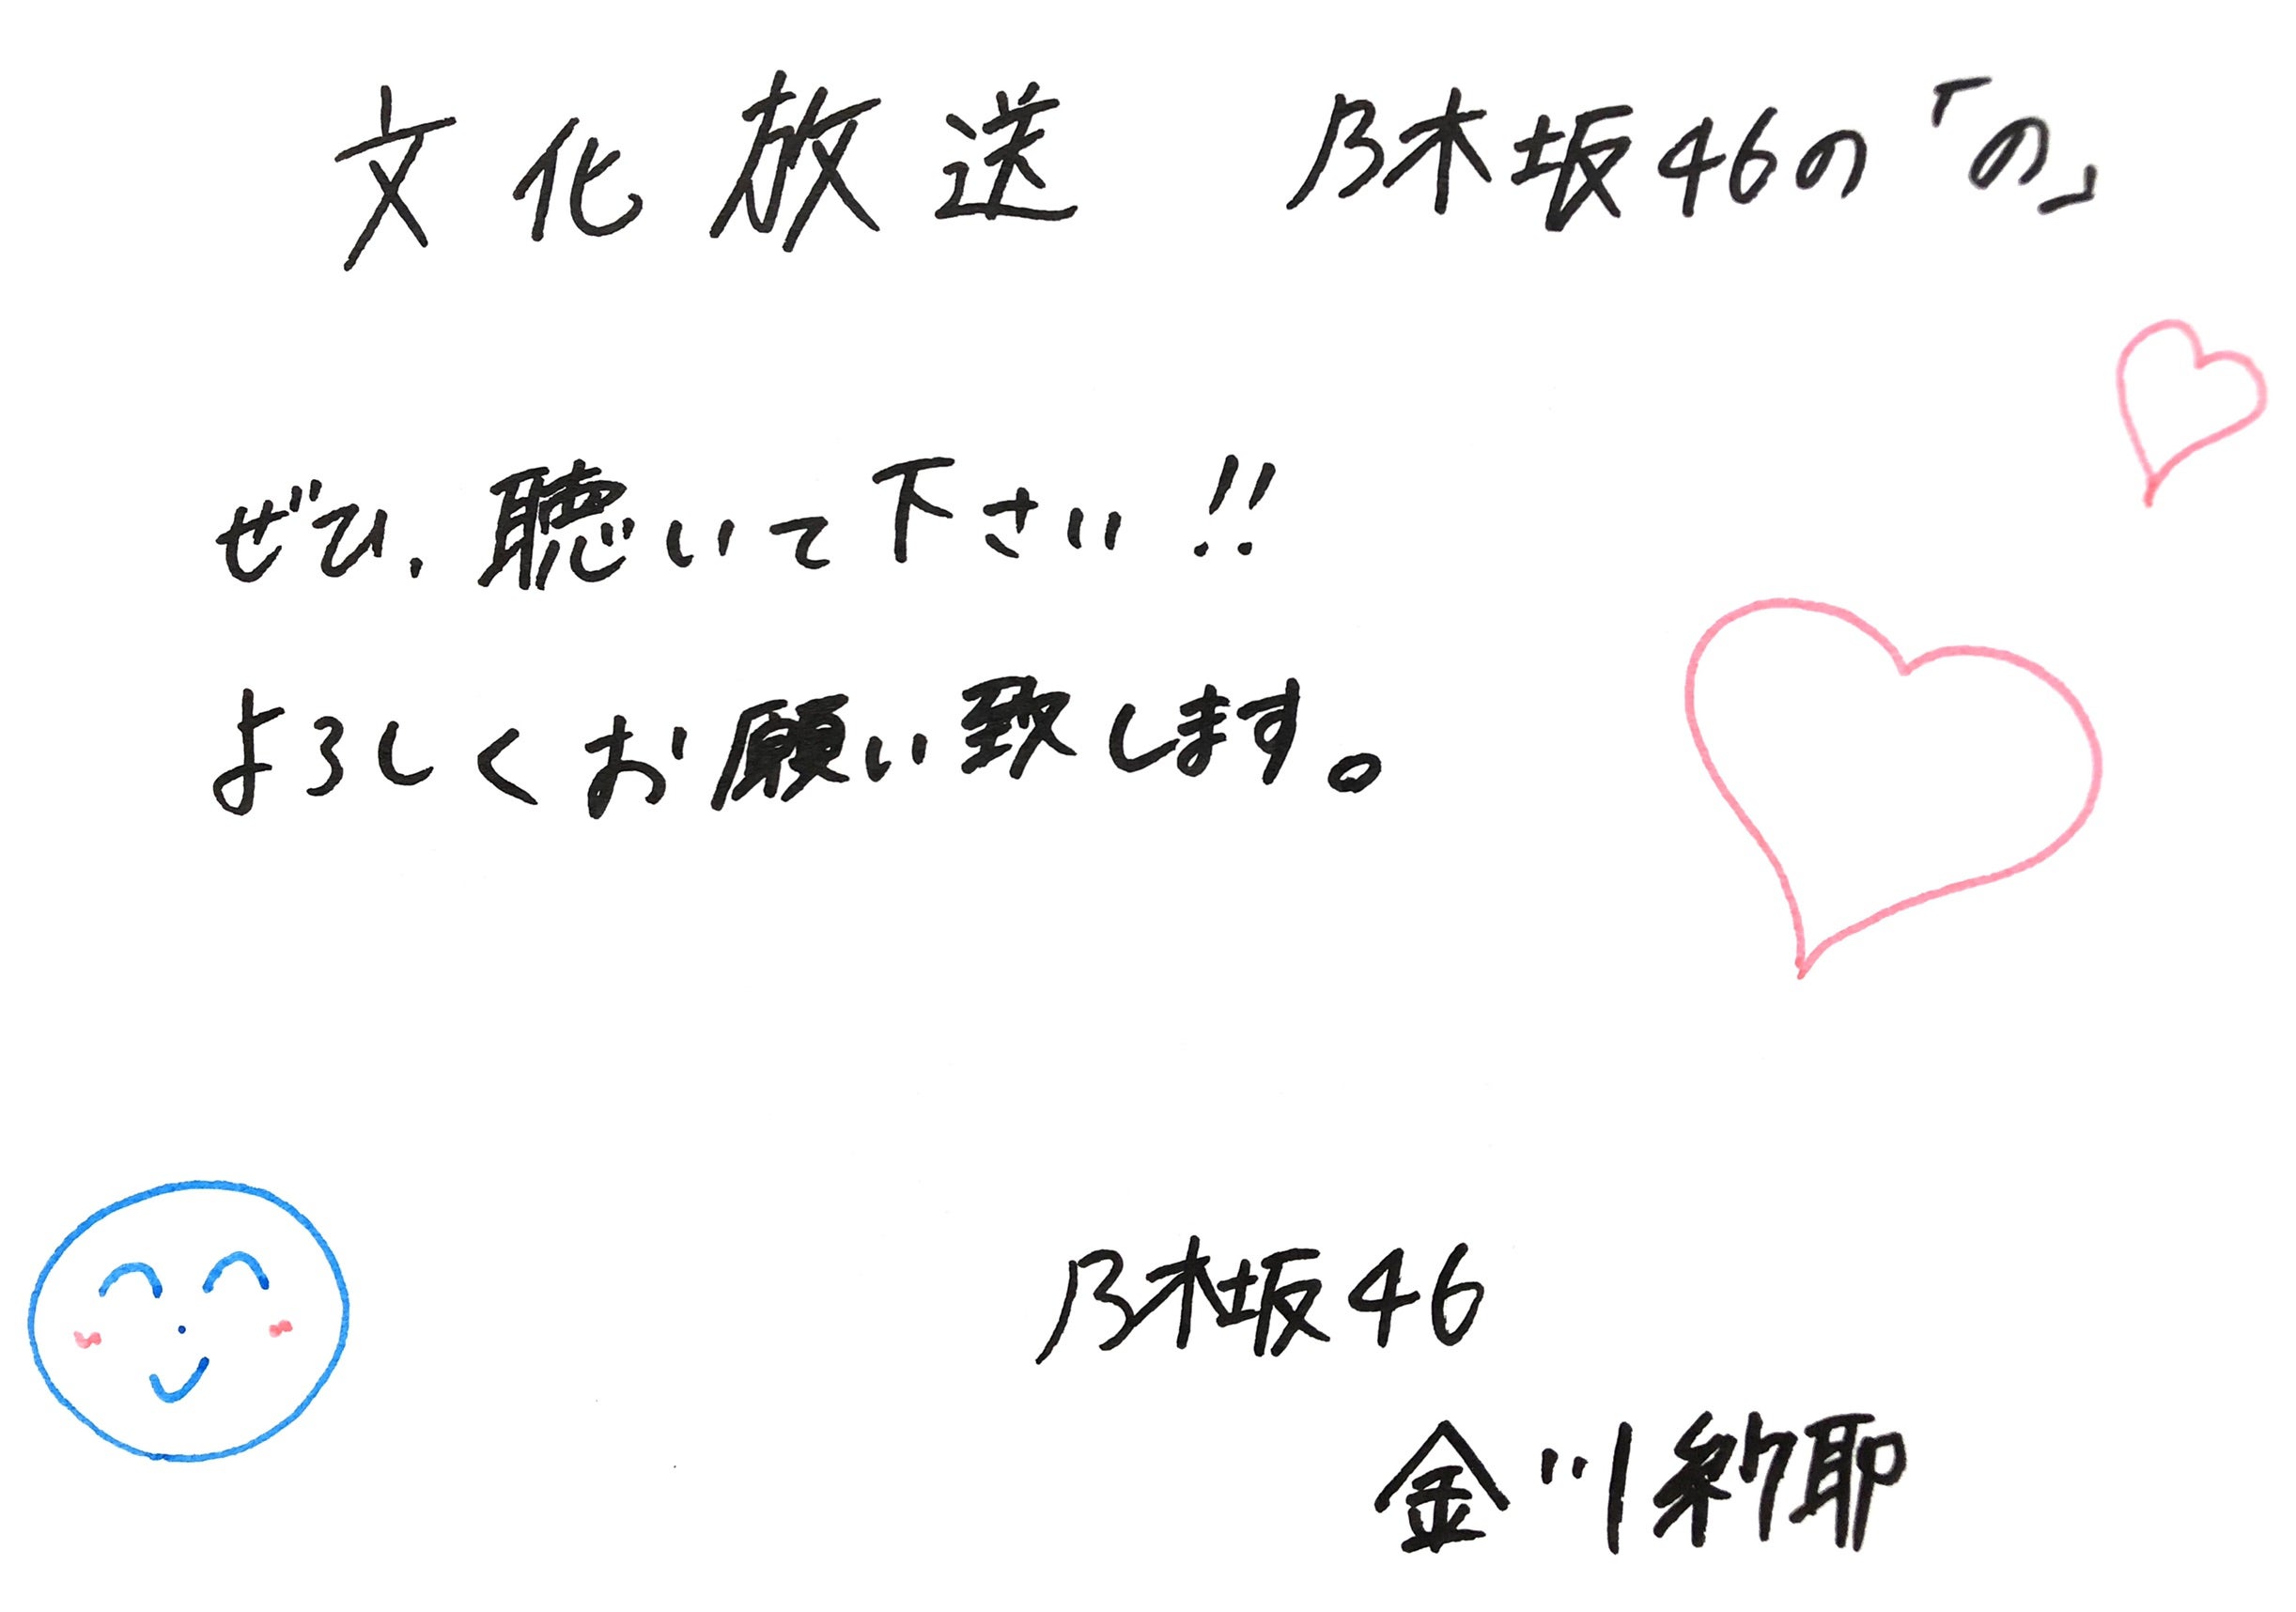 文化放送　乃木坂46の「の」
ぜひ、聴いて下さい!!
よろしくお願い致します。
乃木坂46
金川紗耶